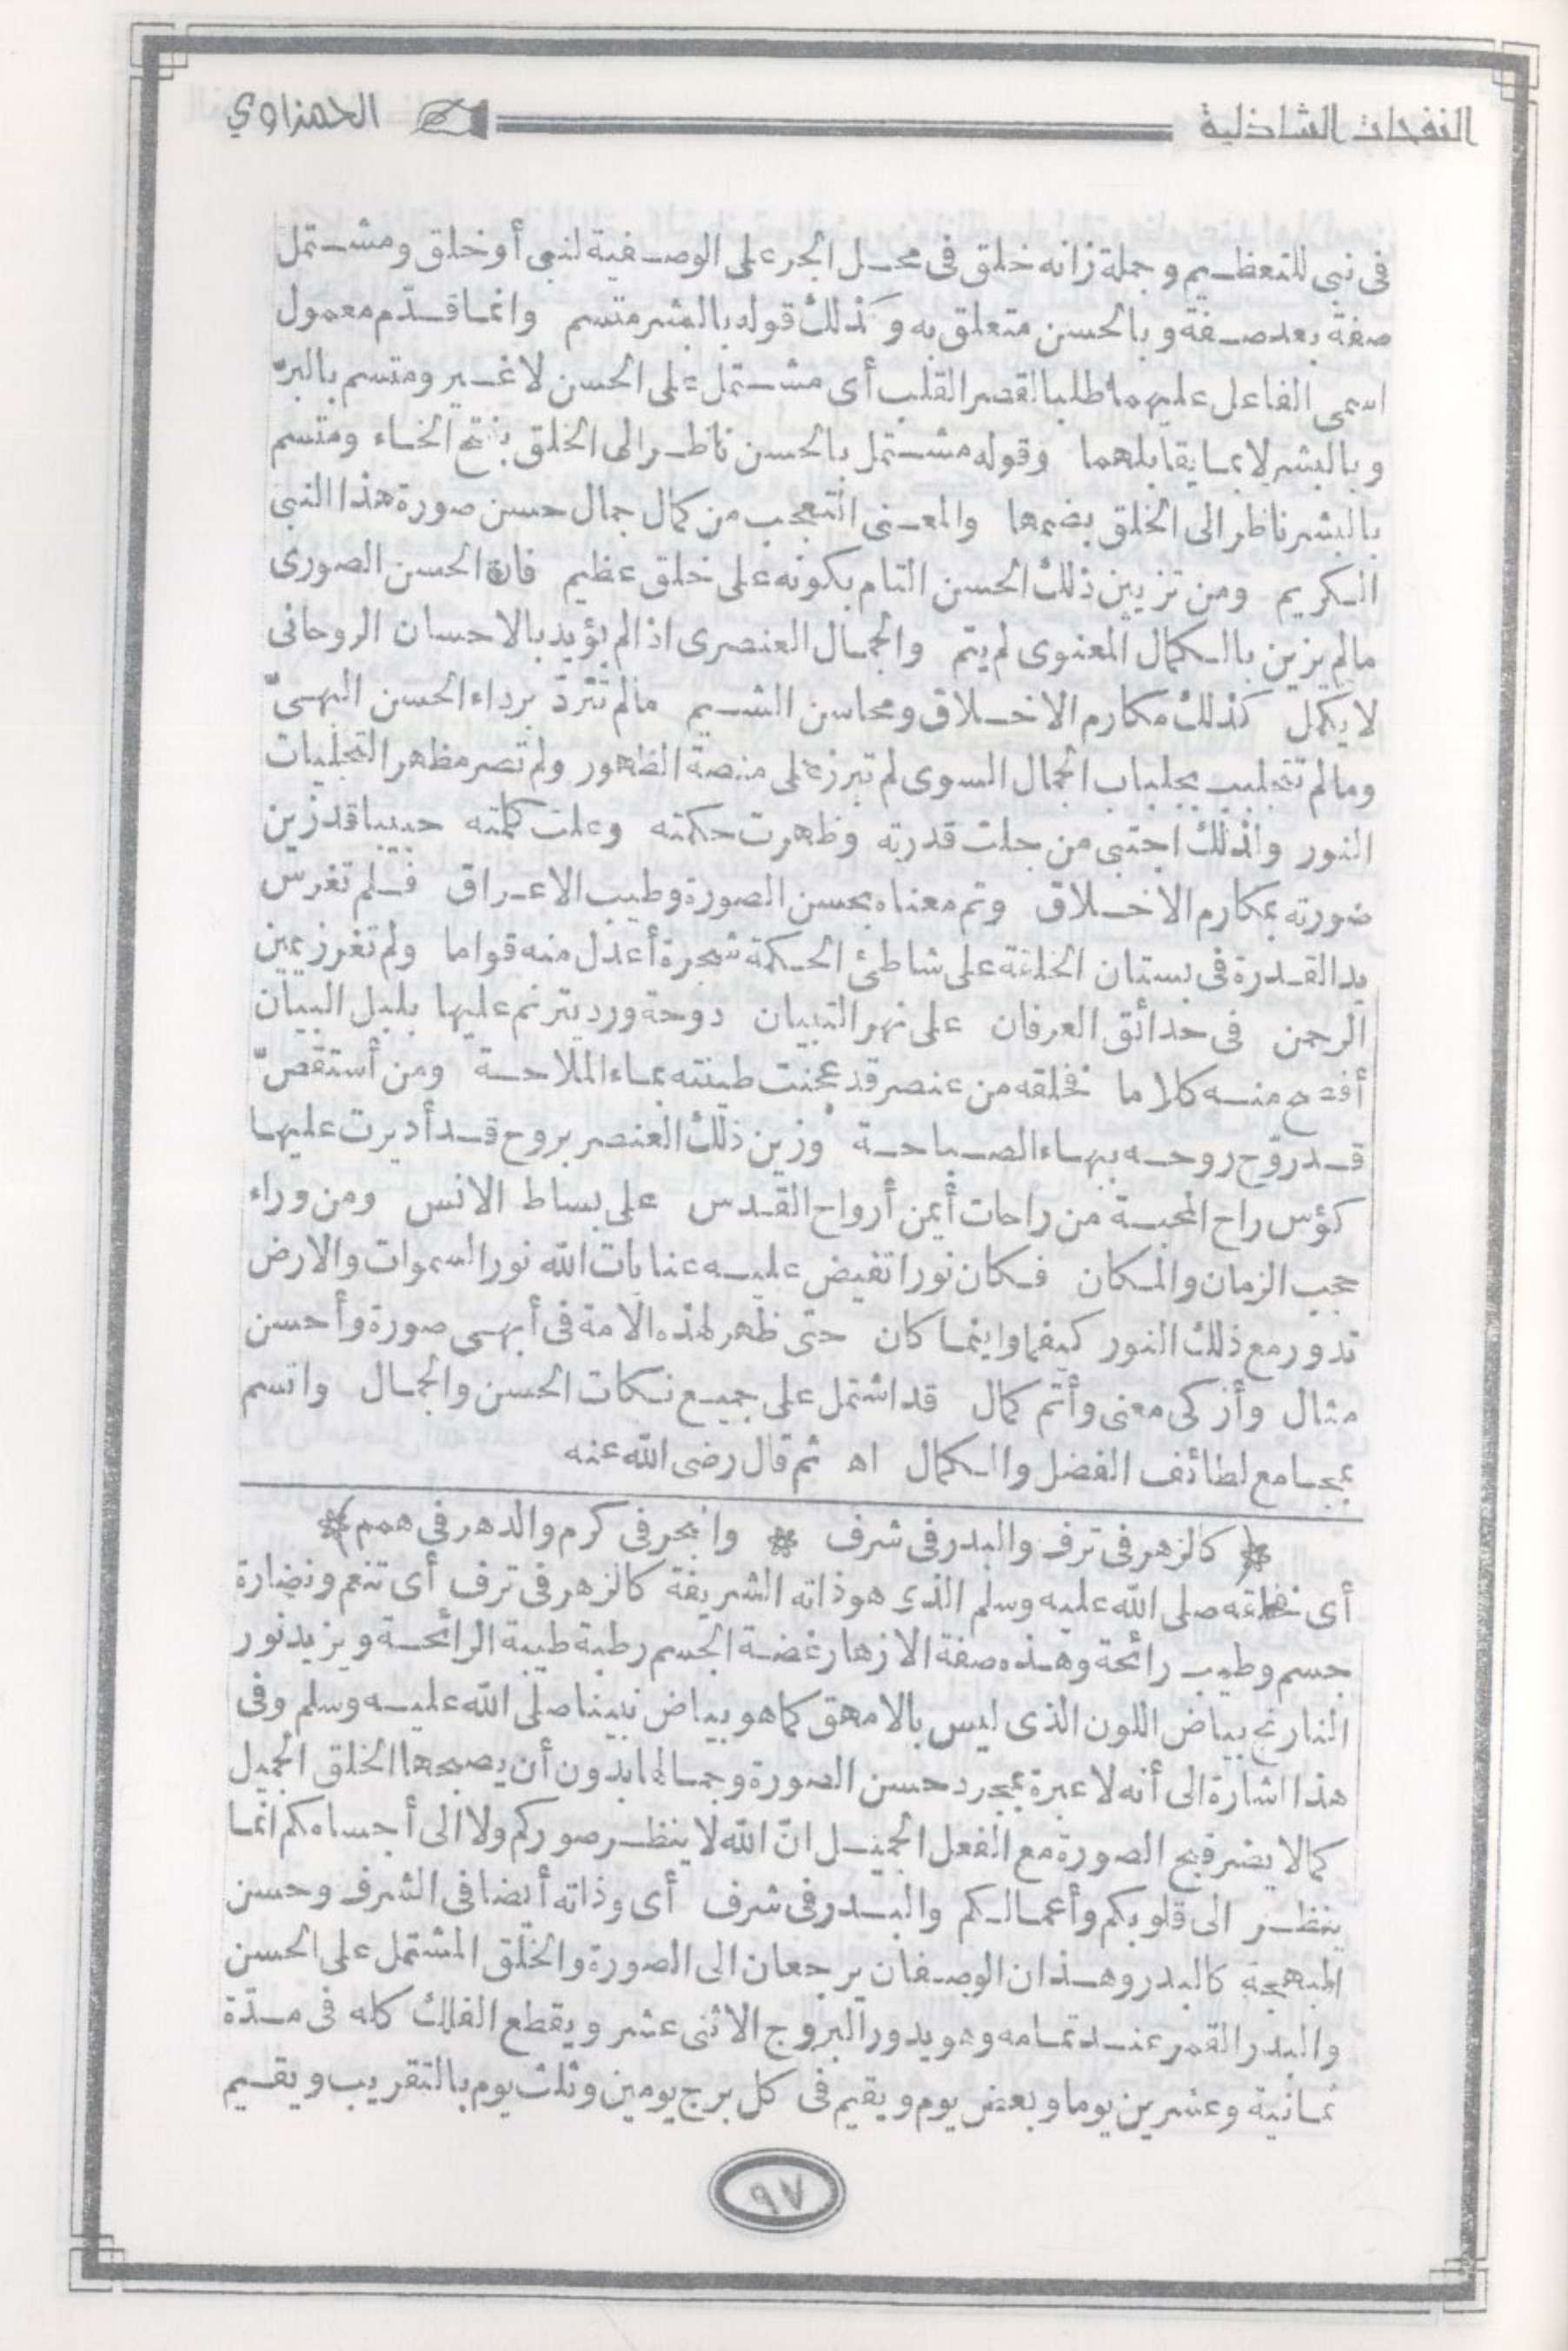 النفحات الشاذلية
الحمزاوي
فى نبى للتعظيم وجملة زانه خلق فى محل الجر على الوصفية لنبى أو خلق ومشتمل
صفة بعد صفة وبالحسن متعلق به وكذلك قوله بالبشر متسم وانما قدّم معمول
اسمى الفاعل عليهما طلبا لقصر القلب أى مشتمل على الحسن لا غير ومتسم بالبرّ
وبالبشر لا بما يقابلهما وقوله مشتمل بالحسن ناظر الى الخلق بفتح الخاء ومتسم
بالبشر ناظر الى الخلق بضمها والمعنى التعجب من كمال جمال حسن صورة هذا النبى
الكريم ومن تزيين ذلك الحسن التام بكونه على خلق عظيم فان الحسن الصورى
مالم يزين بالكمال المعنوى لم يتم والجمال العنصرى اذا لم يؤيد بالاحسان الروحانى
لا يكمل كذلك مكارم الاخلاق ومحاسن الشيم مالم تتردّ برداء الحسن البهىّ
ومالم تتجلبب بجلباب الجمال السوى لم تبرز على منصة الظهور ولم تصر مظهر التجليات
النور ولذلك اجتبى من جلت قدرته وظهرت حكمته وعلت كلمته حبيبا قد زين
صورته بمكارم الاخلاق وتم معناه بحسن الصورة وطيب الاعراق فلم تغرس
يد القدرة فى بستان الخلقة على شاطئ الحكمة شجرة أعدل منه قواما ولم تغرز يمين
الرحمن فى حدائق العرفان على نهر التبيان دوحة ورد يترنم عليها بلبل البيان
أفصح منه كلاما فخلقه من عنصر قد عجنت طينته بماء الملاحة ومن أستقصّ
قد روّح روحه ببهاء الصباحة وزين ذلك العنصر بروح قد أديرت عليها
كؤس راح المحبة من راحات أيمن أرواح القدس على بساط الانس ومن وراء
حجب الزمان والمكان فكان نورا تفيض عليه عنايات الله نور السموات والارض
تدور مع ذلك النور كيفما واينما كان حتى ظهر لهذه الامة فى أبهى صورة وأحسن
مثال وأزكى معنى وأتم كمال قد اشتمل على جميع نكات الحسن والجمال واتسم
بمجامع لطائف الفضل والكمال اه ثم قال رضى الله عنه
* كالزهر فى ترف والبدر فى شرف * والبحر فى كرم والدهر فى همم *
أى خلقه صلى الله عليه وسلم الذى هو ذاته الشريفة كالزهر فى ترف أى تنعم ونضارة
جسم وطيب رائحة وهذه صفة الازهار غضة الجسم رطبة طيبة الرائحة ويزيد نور
النارنج بياض اللون الذى ليس بالامهق كما هو بياض نبينا صلى الله عليه وسلم وفى
هذا اشارة الى أنه لا عبرة بمجرد حسن الصورة وجمالها بدون أن يصبحها الخلق الجميل
كما لا يضر قبح الصورة مع الفعل الجميل انّ الله لا ينظر صوركم ولا الى أجسامكم انما
ينظر الى قلوبكم وأعمالكم والبدر فى شرف أى وذاته أيضا فى الشرف وحسن
البهجة كالبدر وهذان الوصفان يرجعان الى الصورة والخلق المشتمل على الحسن
والبدر القمر عند تمامه وهو يدور البروج الاثنى عشر ويقطع الفلك كله فى مدّة
ثمانية وعشرين يوما وبعض يوم ويقيم فى كل برج يومين وثلث يوم بالتقريب ويقيم
٩٧